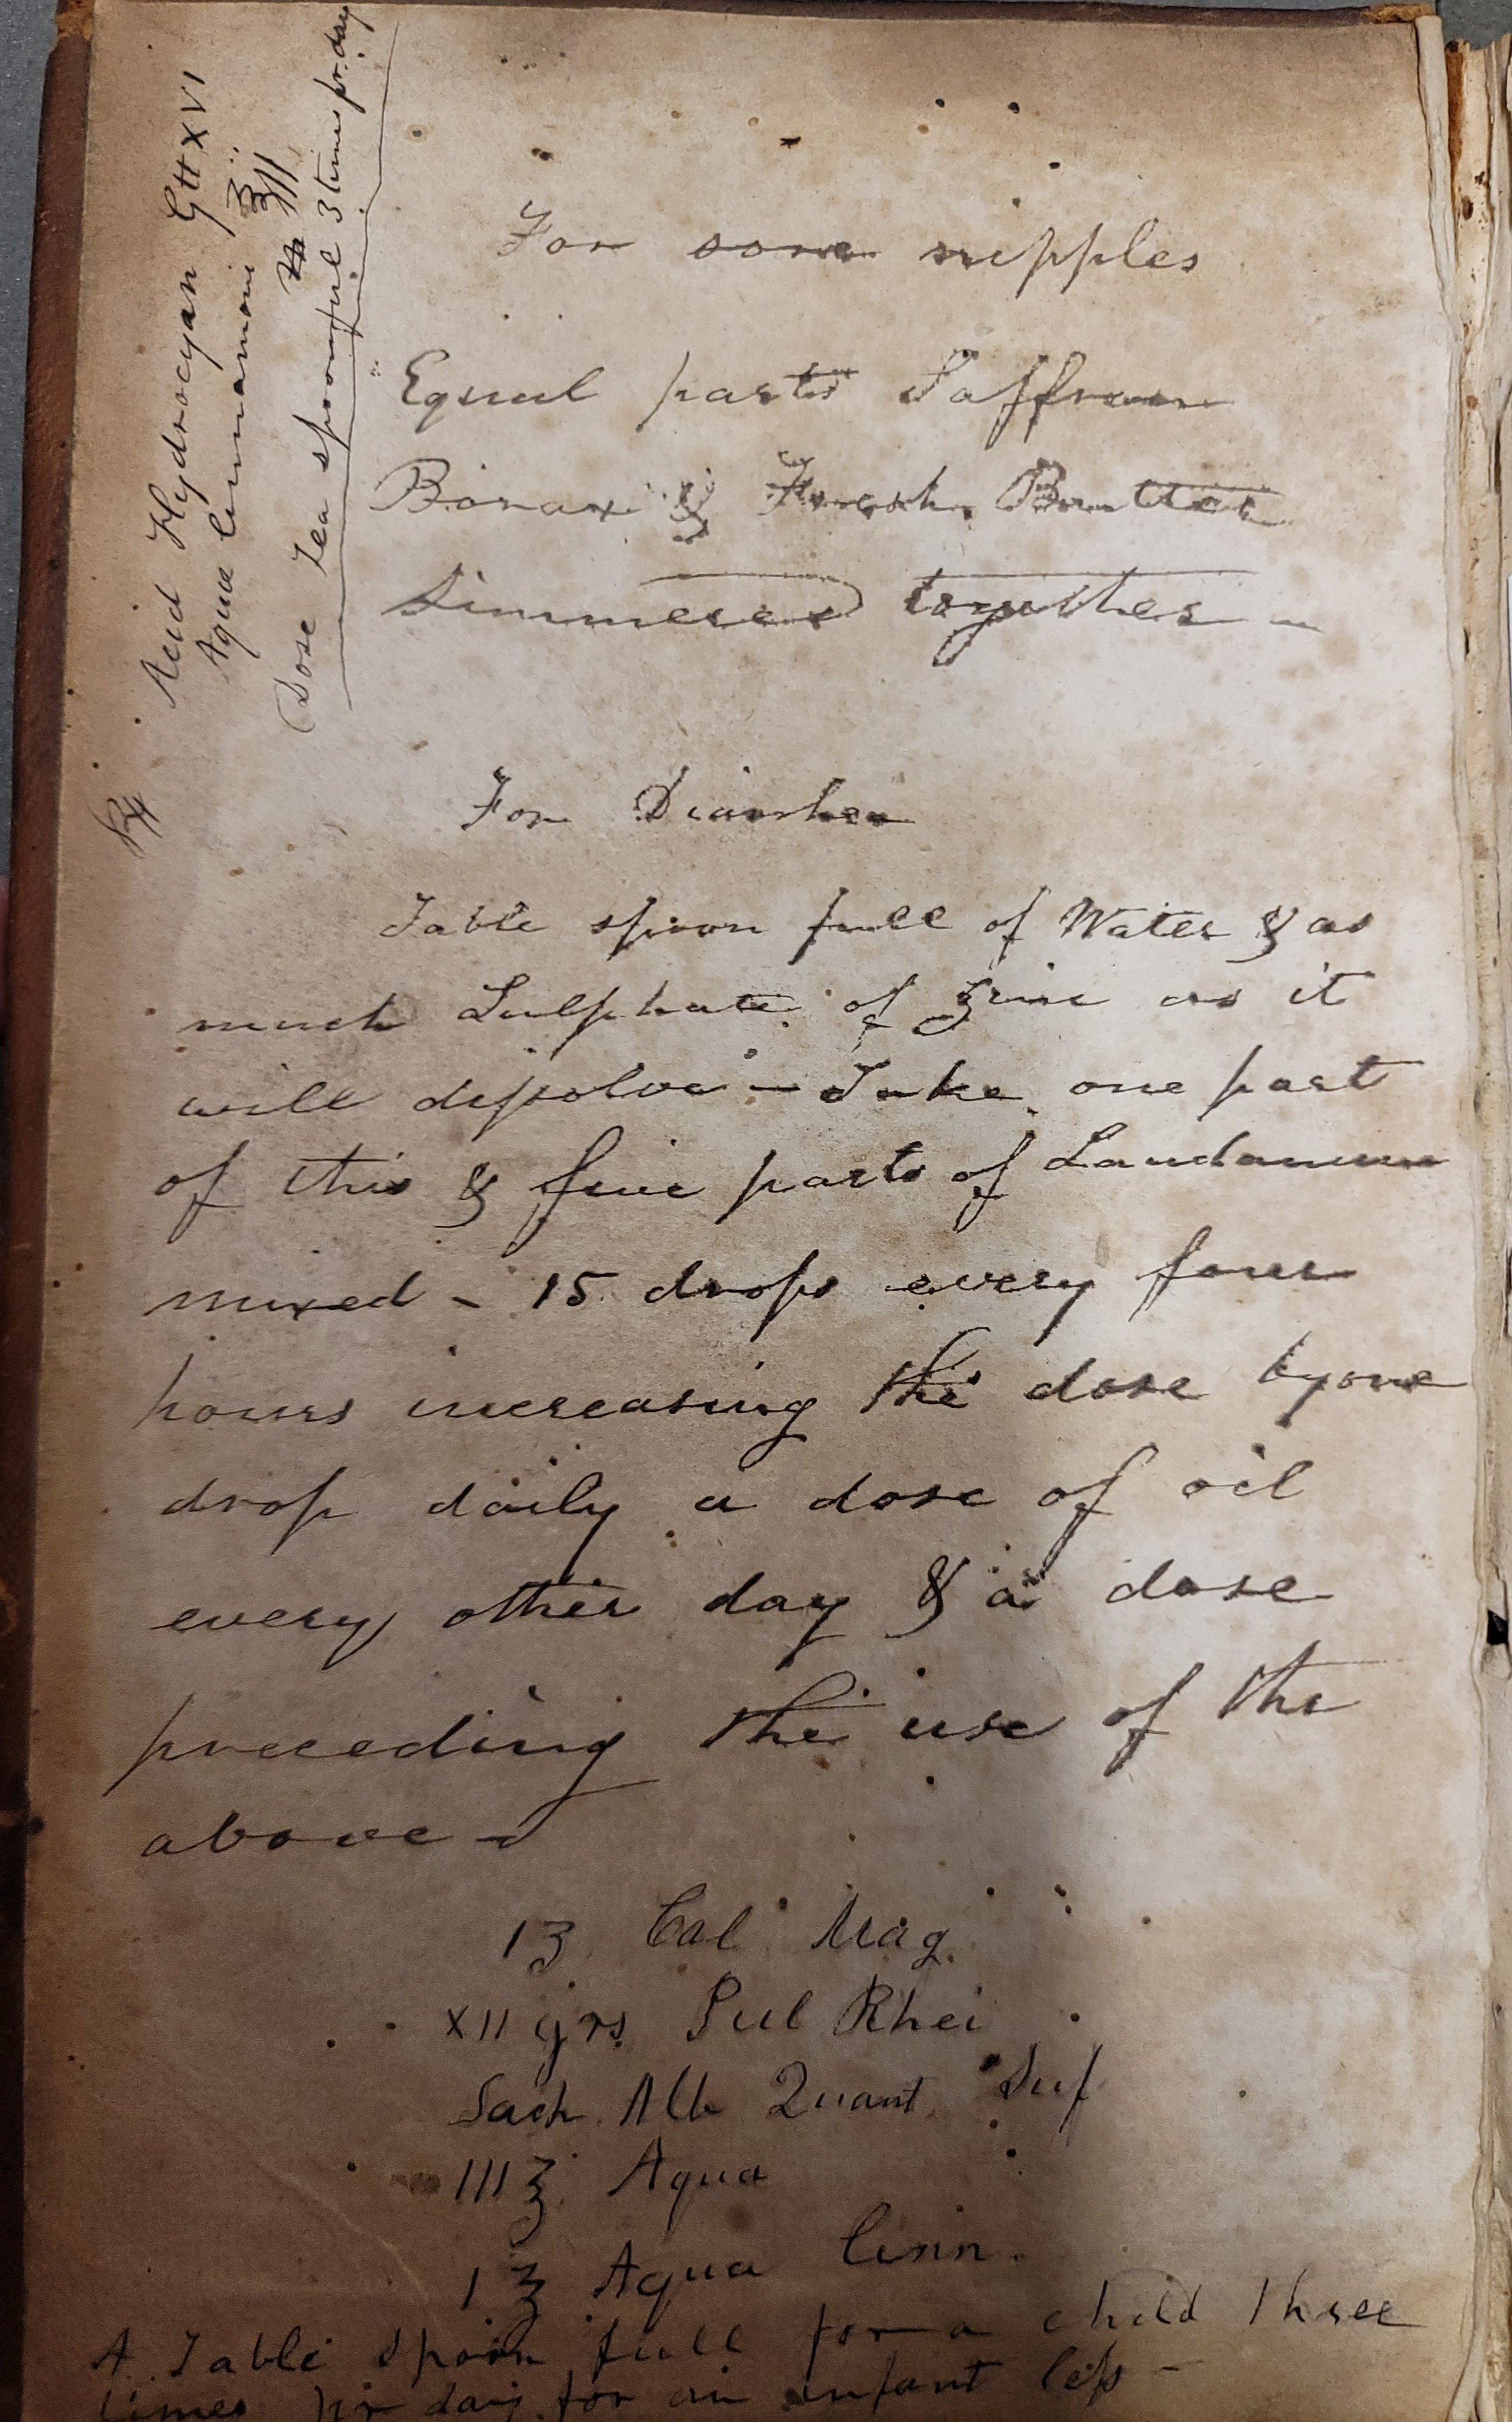 Acid Hydrocyan Gtt XVI
Aqua Cinnamoni ℥ii
Dose Tea spoonful 3 times pr. day
℞
For sore nipples
Equal parts Saffron
Borax & Fresh Butter
Simmered together –
For Diarrhea
Table spoon full of Water & as
much Sulphate of Zinc as it
will dissolve – Take one part
of this & five parts of Laudanum
mixed – 15 drops every four
hours increasing the dose by one
drop daily a dose of oil
every other day & a dose
preceding the use of the
above –
1ʒ Cal Mag
XII grs Pul Rhei
Sach Alb Quant Suf
III℥ Aqua
1℥ Aqua Cinn.
A Table spoon full for a child three
times pr day for an infant less –